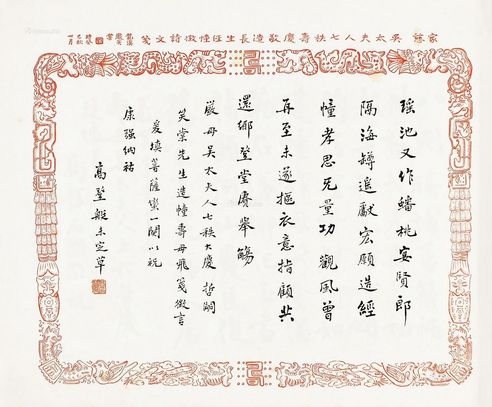 家慈吳太夫人七秩壽慶敬造長生經幢徵詩文箋
瑤池又作蟠桃宴賢郎
隔海罇遥獻宏願造經
幢孝思无量功 觀風曾
再至未遂摳衣意指顧共
還鄉登堂齊舉觴
嚴母吳太夫人七秩大慶 哲嗣
笑棠先生造幢壽母飛箋徵言
爰填菩薩蠻一闋以祝
康强納祜
高登艇未定草